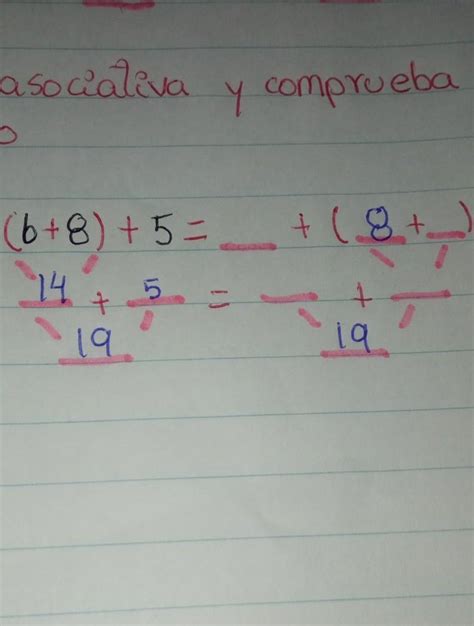 asociativa y comprueba
o
(6+8)+5= __ + (8+__)
14 + 5 = __ + __
19 19